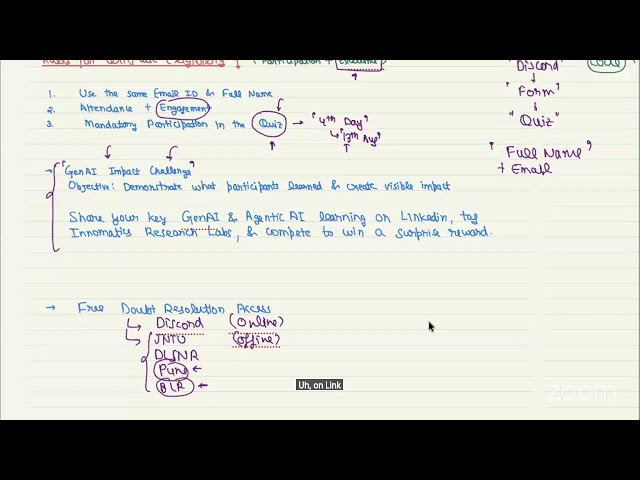 Rules for Certificate Eligibility (Participation + Excellence)
1. Use the same Email ID & Full Name
2. Attendance + Engagement
3. Mandatory Participation in the Quiz → "4th Day"
"13th Aug"
"Discord"
"Form"
"Quiz"
"Full Name"
+ Email
→ "GenAI Impact Challenge"
Objective: Demonstrate what participants learned & create visible impact
Share your key GenAI & Agentic AI learning on Linkedin, tag
Innomatics Research Labs, & compete to win a surprise reward.
→ Free Doubt Resolution Access
Discord (Online)
JNTU (Offline)
DLSNR
Pune ←
BLR ←
Uh, on Link
zoom